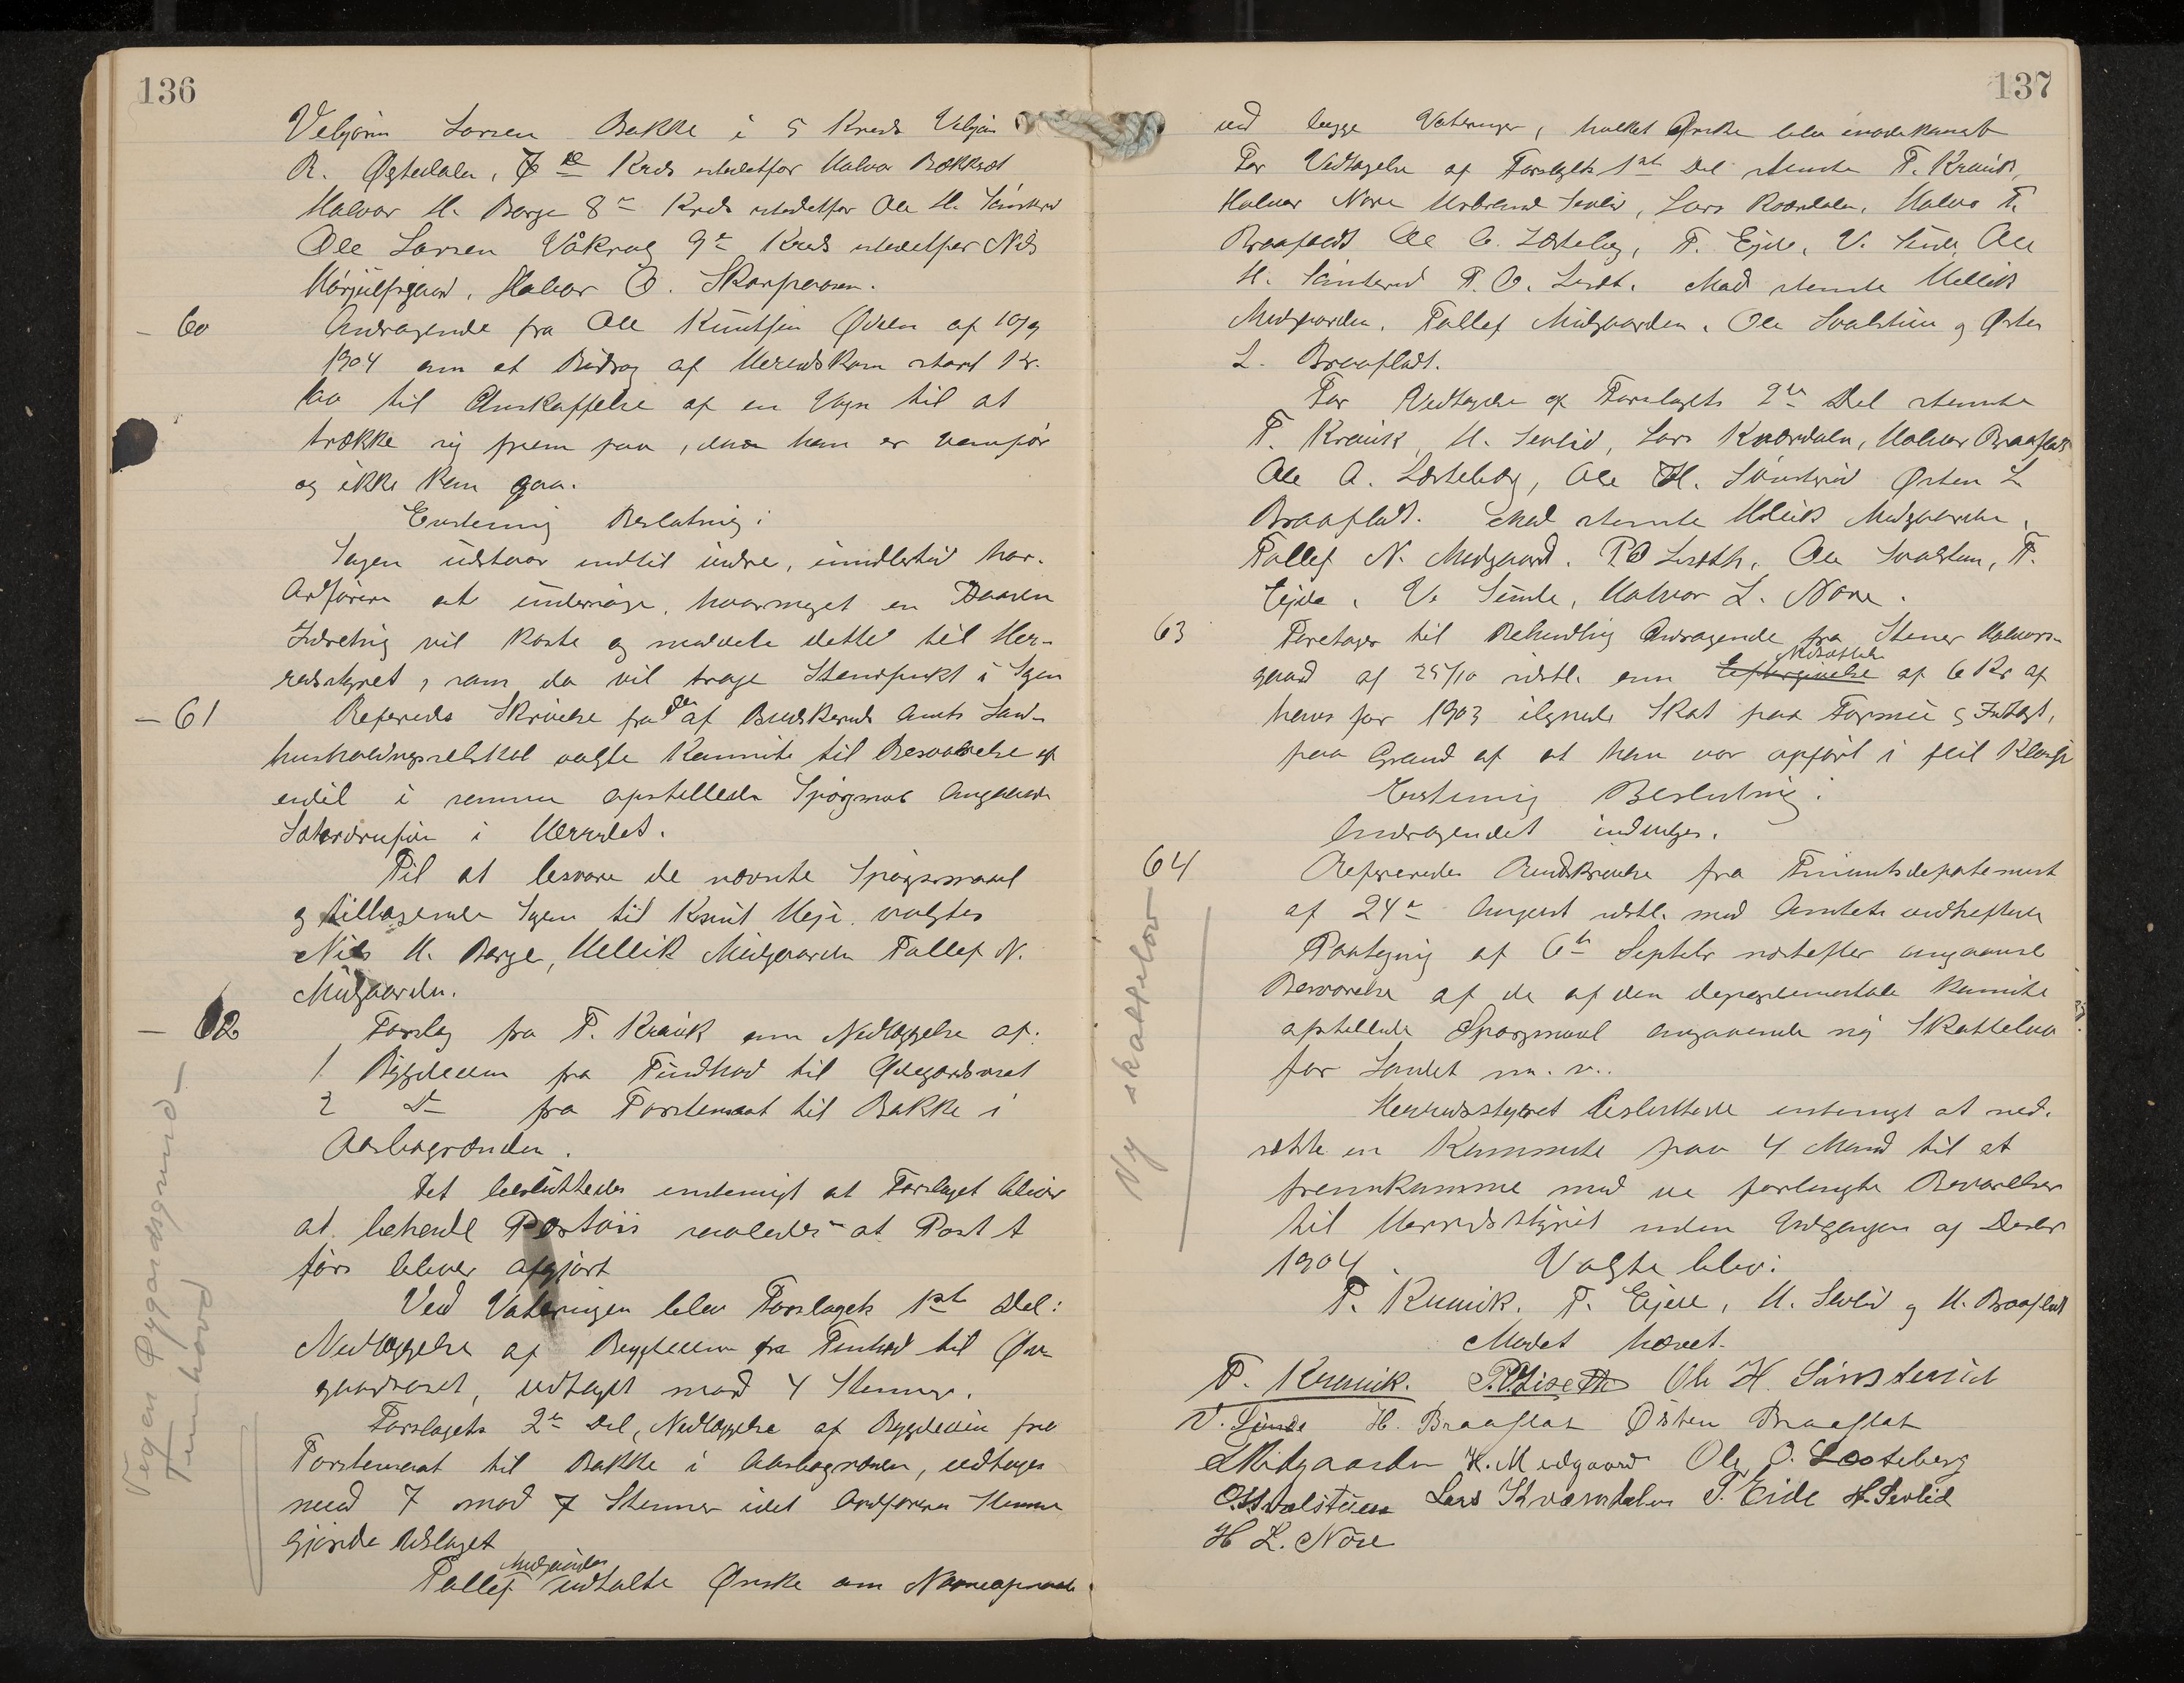 136
Velgjörm Larsen Bakke i 5 Kreds Velgjör
R. Øgtedalen, 7de Kreds istedetfor Halvor
Halvor H. Berge 8de Kreds istedetfor Ole H. Sönsterud
Ole Larsen Våkrag 9de Kreds istedetfor Nils
Hörjulfsgaard, Halvor O. Skarpaasen.
- 60 Andragende fra Ole Knutsen Ødeen af 10/9
1904 om et Bidrag af Herredskassen stort Kr.
til Anskaffelse af en Vogn til at
trække sig frem paa, da han er vanför
og ikke kan gaa.
Enstemmig Beslutning:
Sagen udstaar indtil videre, imidlertid har
Ordföreren at undersöge, hvormeget en saadan
Indretning vil koste og meddele dette til Her-
redsstyret, som da vil tage Standpunkt i Sagen
- 61 Refereredes Skrivelse fra den af Buskeruds Amts Land-
husholdningsselskab valgte Komite til Besvarelse af
endel i samme opstillede Spörgsmaal angaaende
Sæterdriften i Herredet.
Til at besvare de nævnte Spörgsmaal
og tilbagesende Sagen til Knut Heje valgtes
Nils H. Berge, Hellik Midgaarden Tollef N.
Midgaarden.
- 62 Forslag fra T. Kravik om Nedlæggelse af:
1 Bygdeveien fra Tindhovd til Ødegaardsnaset
2 Do fra Torstemoat til Bakke i
Aasbøgrænden.
Det besluttedes enstemmigt at Forslaget bliver
at behandle Postvis saaledes at Post 1
förs bliver afgjört
Ved Voteringen blev Forslagets 1ste Del:
Nedlæggelse af Bygdeveien fra Tinhovd til Øde-
gaardsnaset, vedtaget mod 4 Stemmer.
Forslagets 2den Del, Nedlæggelse af Bygdeveien fra
Torstemoat til Bakke i Aasbøgrænden, vedtages
med 7 mod 7 Stemmer idet Ordförerens Stemme
gjorde Udslaget
Tollef Midgaarden udtalte Ønske om Navneopraab
Vegen Øygardsgrend -
Tunnhovd
137
ved begge Voteringer, hvilket Ønske blev imödekommet
For Vedtagelse af Forslagets 1ste Del stemte T. Kravik,
Halvor Nore Sevlid, Lars Kværndalen, Halvor T.
Braafladt Ole O. Lösteberg, T. Ejde, V. Simle, Ole
H. Sönsterud P. O. Liseth. Mod stemte Hellik
Midgaarden, Tollef Midgaarden, Ole Svalstuen og Østen
L. Braafladt.
For Vedtagelse af Forslagets 2den Del stemte
T. Kravik, H. Sevlid, Lars Kværndalen, Halvor Braafladt
Ole O. Lösteberg, Ole H. Sönsterud Østen L
Braafladt. Mod stemte Hellik Midgaarden,
Tollef N. Midgaard. P O Liseth, Ole Svalstuen, T.
Ejde, V. Simle, Halvor L. Nore.
63 Foretages til Behandling Andragende fra Stener Halvors-
gaard af 25/10 sidstl. om Eftergivelse Nedsættelse af 6 Kr af
hans for 1903 ilignede Skat paa Formue & Indtægt,
paa Grund af at han var opfört i feil Klasse
Enstemmig Beslutning:
Andragendet indvilges.
64 Refereredes Rundskrivelse fra Finantsdepartement
af 24de August sidstl. med Amtets vedheftede
Paategning af 6te Septebr næstefter angaaende
Besvarelse af de af den departementale Komite
opstillede Spörgsmaal angaaende ny Skattelov
for Landet m. v..
Herredsstyret besluttede enstemmigt at ned-
sætte en Kommite paa 4 Mand til at
fremkomme med de forlangte Besvarelser
til Herredsstyret inden Udgangen af Decbr
1904. Valgte blev:
T. Kravik. T. Ejde, H. Sevlid og H. Braafladt
Mødet hævet.
T. Kravik. P.O. Liseth Ole H. Sönsterud
V. Simle H. Braaflat Östen Braaflat
Midgaarden H. Midgaard Ole O. Lösteberg
O. Svalstuen Lars Kværndalen T. Eide H. Sevlid
H L. Nore
Ny skattelov